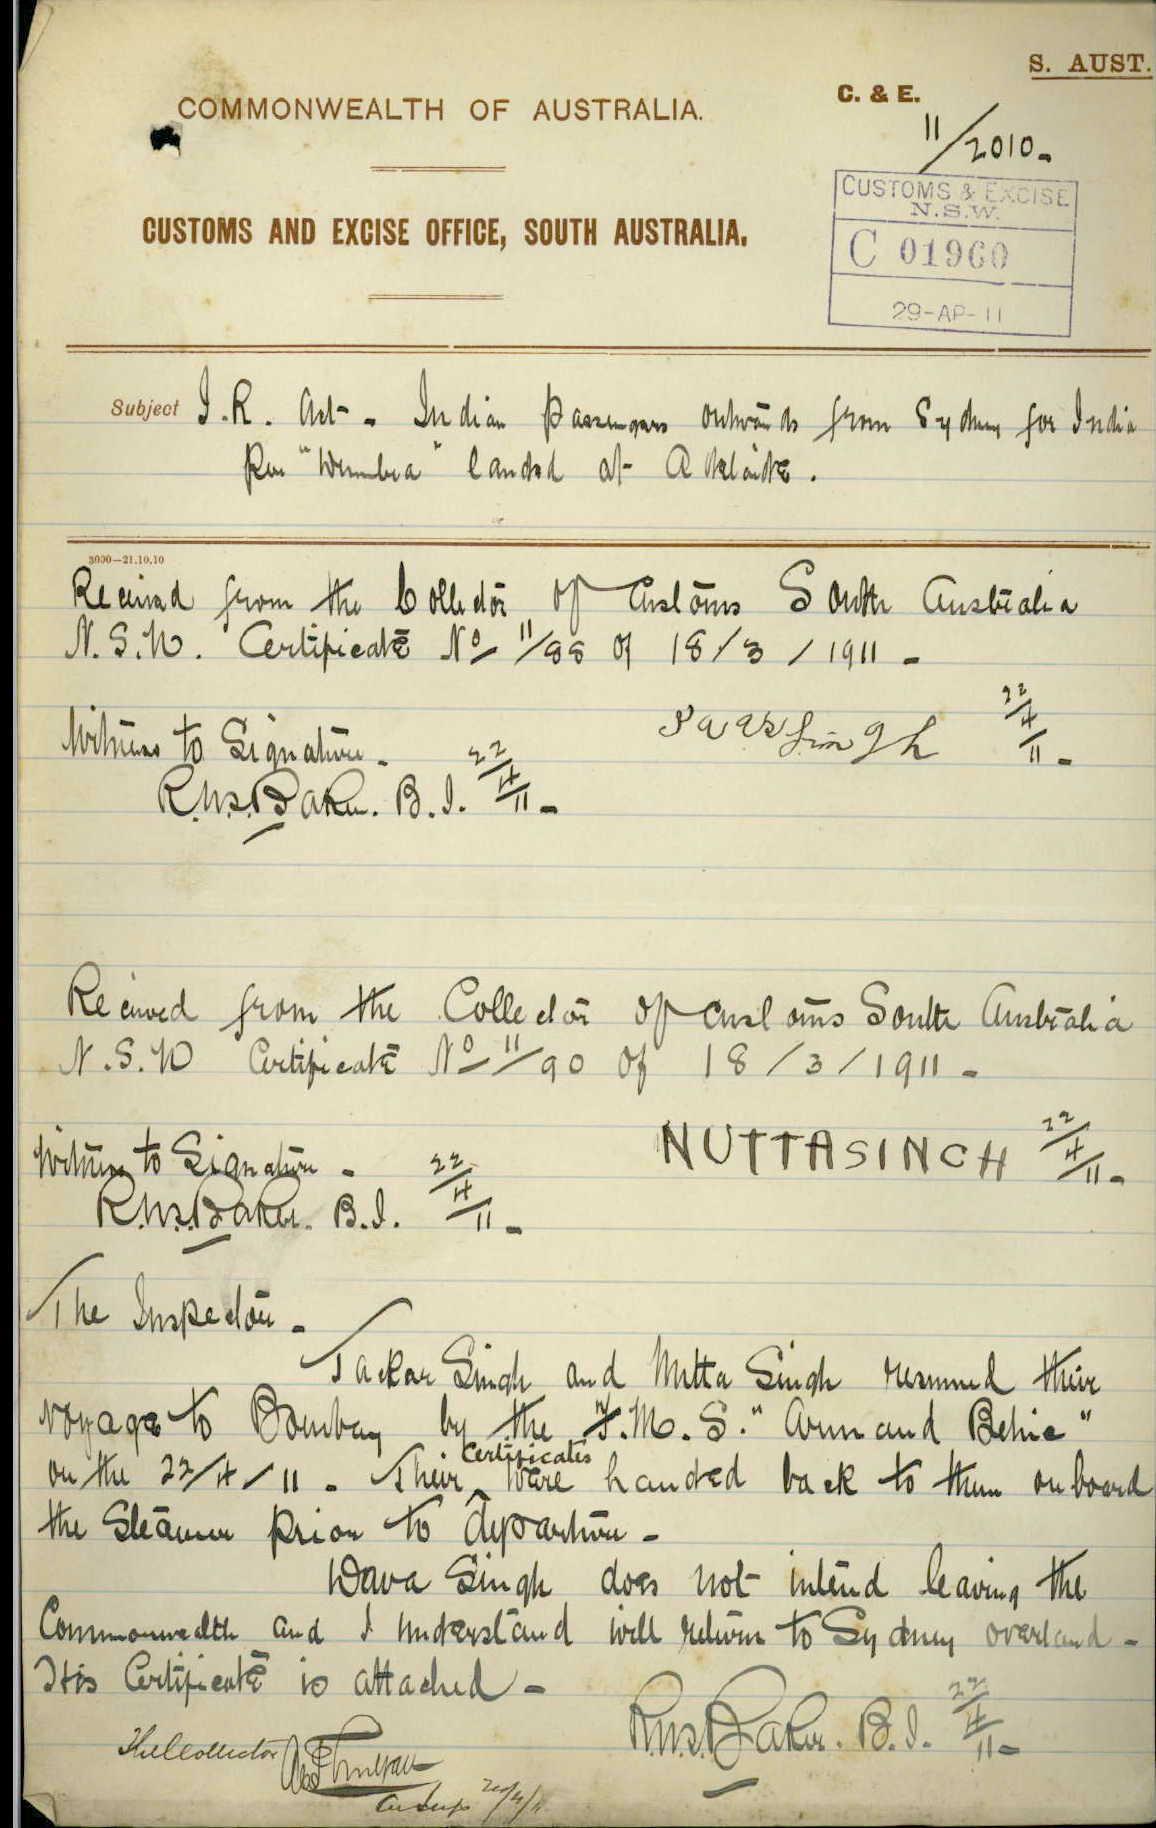 S. AUST.
COMMONWEALTH OF AUSTRALIA.
C. & E.
11/2010.
CUSTOMS & EXCISE
N.S.W.
C 01960
29-AP-11
CUSTOMS AND EXCISE OFFICE, SOUTH AUSTRALIA.
Subject I.R. Act - Indian passengers outwards from Sydney for India
per "Wimbera" landed at Adelaide.
3000-21.10.10
Received from the Collector of Customs South Australia
N.S.W. Certificate No 11/88 of 18/3/1911 -
Singh 22/4/11 -
Witness to Signature -
R.W.S. Baker. B.I. 22/4/11 -
Received from the Collector of Customs South Australia
N.S.W Certificate No 11/90 of 18/3/1911 -
NUTTASINCH 22/4/11 -
Witness to Signature -
R.W.S. Baker. B.I. 22/4/11 -
The Inspector -
Tackar Singh and Mitta Singh resumed their
voyage to Bombay by the F.M.S. "Armand Behic"
on the 22/4/11 - Their Certificates were handed back to them on board
the Steamer prior to departure -
Wava Singh does not intend leaving the
Commonwealth and I understand will return to Sydney overland -
His Certificate is attached -
R.W.S. Baker. B.I. 22/4/11 -
The Collector